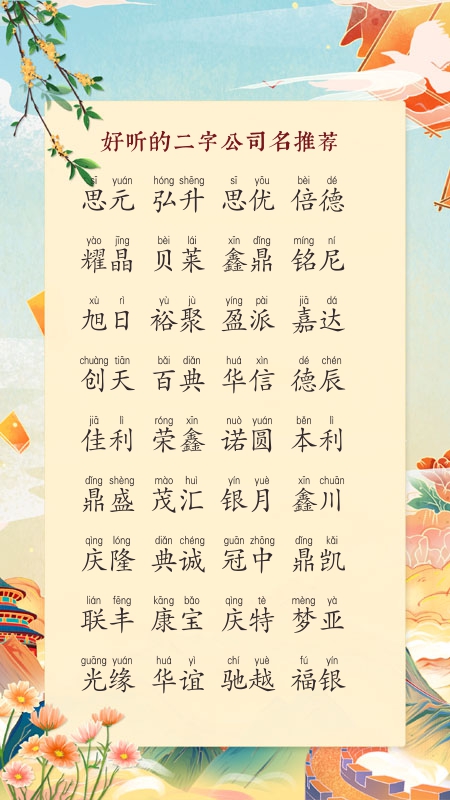 好听的二字公司名推荐
sī yuán hóng shēng sī yōu bèi dé
思元 弘升 思优 倍德
yào jīng bèi lái xīn dǐng míng ní
耀晶 贝莱 鑫鼎 铭尼
xù rì yù jù yíng pài jiā dá
旭日 裕聚 盈派 嘉达
chuàng tiān bǎi diǎn huá xìn dé chén
创天 百典 华信 德辰
jiā lì róng xīn nuò yuán běn lì
佳利 荣鑫 诺圆 本利
dǐng shèng mào huì yín yuè xīn chuān
鼎盛 茂汇 银月 鑫川
qìng lóng diǎn chéng guān zhōng dǐng kǎi
庆隆 典诚 冠中 鼎凯
lián fēng kāng bǎo qìng tè mèng yà
联丰 康宝 庆特 梦亚
guāng yuán huá yì chí yuè fú yín
光缘 华谊 驰越 福银